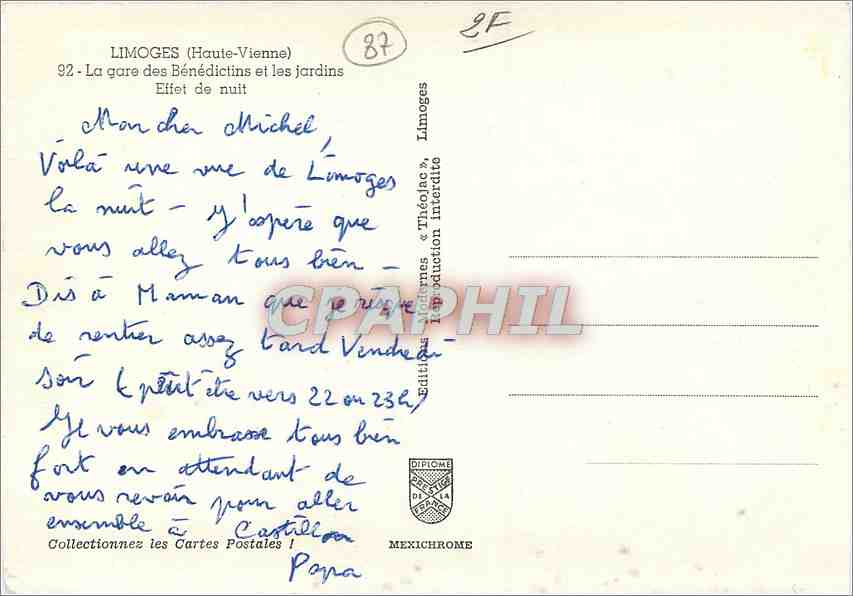 87
2F
LIMOGES (Haute-Vienne)
92 - La gare des Bénédictins et les jardins
Effet de nuit
Mon cher Michel,
Voilà une vue de Limoges
la nuit - J'espère que
vous allez tous bien -
Dis à Maman que je risque
de rentrer assez tard Vendredi
soir (peut être vers 22 ou 23h)
Je vous embrasse tous bien
fort en attendant de
vous revoir pour aller
ensemble à Castillon
Papa
Collectionnez les Cartes Postales !
MEXICHROME
Editions Modernes « Théojac », Limoges
Reproduction interdite
DIPLOME
PRESTIGE
DE LA
FRANCE
CPAPHIL